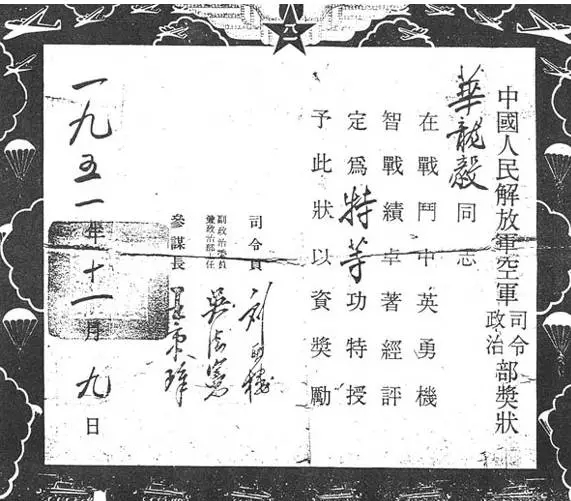 八一
中國人民解放軍空軍司令政治部獎狀
華龍毅同志
在戰鬥中英勇機
智戰績卓著經評
定為特等功特授
予此狀以資獎勵
司令員 刘亞楼
副政治委員
兼政治部主任 吳法憲
參謀長 王秉璋
一九五一年十一月九日